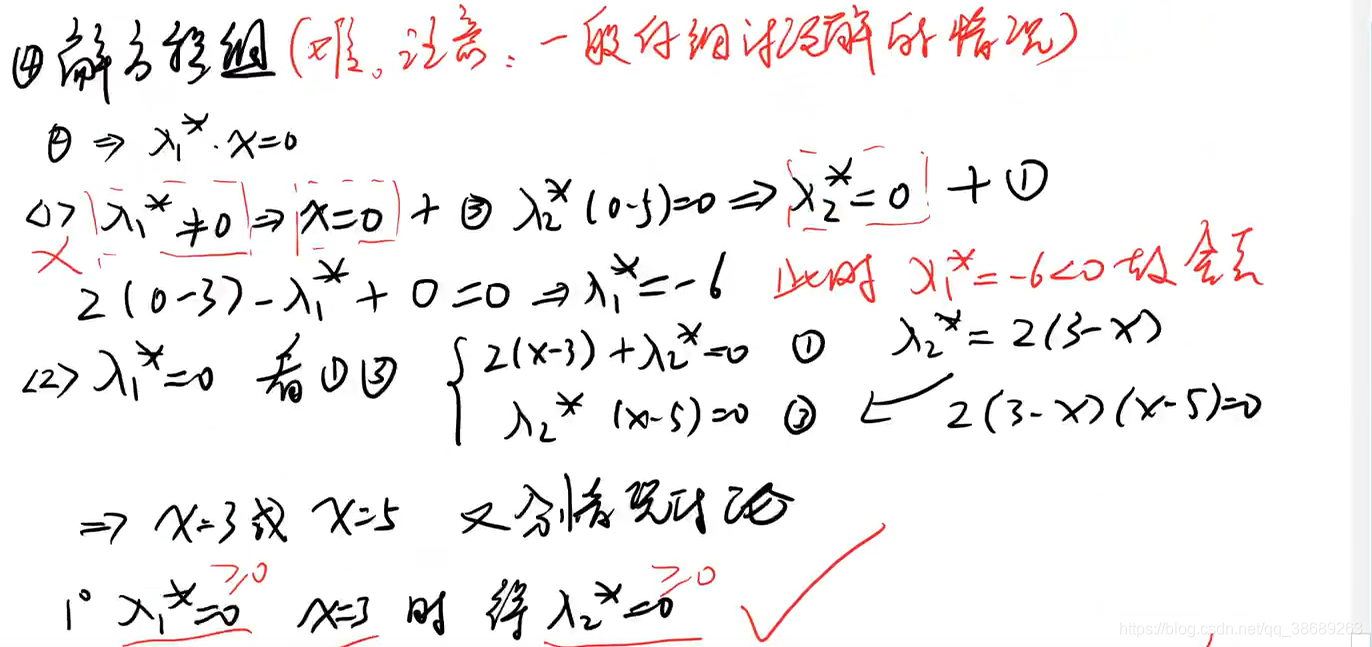 ④解方程组(难。注意:一般仔细讨论解的情况)
② ⇒ λ₁*·x=0
<1> λ₁*≠0 ⇒ x=0 + ③ λ₂*(0-5)=0 ⇒ λ₂*=0 + ①
× 2(0-3)-λ₁*+0=0 ⇒ λ₁*=-6 此时 λ₁*=-6<0 故舍去
<2> λ₁*=0 看①③ { 2(x-3)+λ₂*=0 ① λ₂*=2(3-x)
λ₂*(x-5)=0 ③ ← 2(3-x)(x-5)=0
⇒ x=3或 x=5 又分情况讨论
1° λ₁*=0 ≥0 x=3 时 得 λ₂*=0 ≥0 ✓
https://blog.csdn.net/qq_38689263